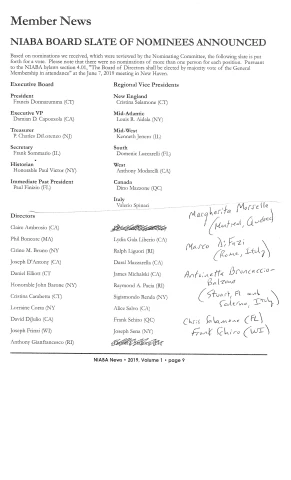 Member News
NIABA BOARD SLATE OF NOMINEES ANNOUNCED
Based on nominations we received, which were reviewed by the Nominating Committee, the following slate is put
forth for a vote. Please note that there were no nominations of more than one person for each position. Pursuant
to the NIABA bylaws section 4.01, "The Board of Directors shall be elected by majority vote of the General
Membership in attendance" at the June 7, 2019 meeting in New Haven.
Executive Board
President
Francis Donnarumma (CT)
Executive VP
Damian D. Capozzola (CA)
Treasurer
P. Charles DiLorenzo (NJ)
Secretary
Frank Sommario (IL)
Historian
Honourable Paul Victor (NY)
Immediate Past President
Paul Finizio (FL)
Regional Vice Presidents
New England
Cristina Salamone (CT)
Mid-Atlantic
Louis R. Aidala (NY)
Mid-West
Kenneth Jenero (IL)
South
Domenic Lucarelli (FL)
West
Anthony Modarelli (CA)
Canada
Dino Mazzone (QC)
Italy
Valerio Spinaci
Directors
Claire Ambrosio (CA)
Phil Boncore (MA)
Crisno M. Bruno (NY
Joseph D'Antony (CA)
Daniel Elliott (CT
Honorable John Barone (NY)
Cristina Candoris (CT)
Lorraine Coyra (NY
David DiJulio (CA)
Joseph Friozi (WI)
Anthony Gianfrancesco (RI)
Lydia Gaia Liberio (CA)
Ralph Liguori (RI)
Darai Mazzarella (CA)
James Michalski (CA)
Raymond A. Pacia (RI)
Sigismondo Renda (NY)
Alice Salvo (CA)
Frank Schiro (QC)
Joseph Sena (NY)
Margherita Morsella
(Montreal, Quebec)
Marco DiFazi
(Rome, Italy)
Antoinette Brancaccio-
Balzano
(Stuart, FL and
Salerno, Italy)
Chris Salamone (FL)
Frank Schiro (WI)
NIABA News • 2019, Volume 1 • page 9